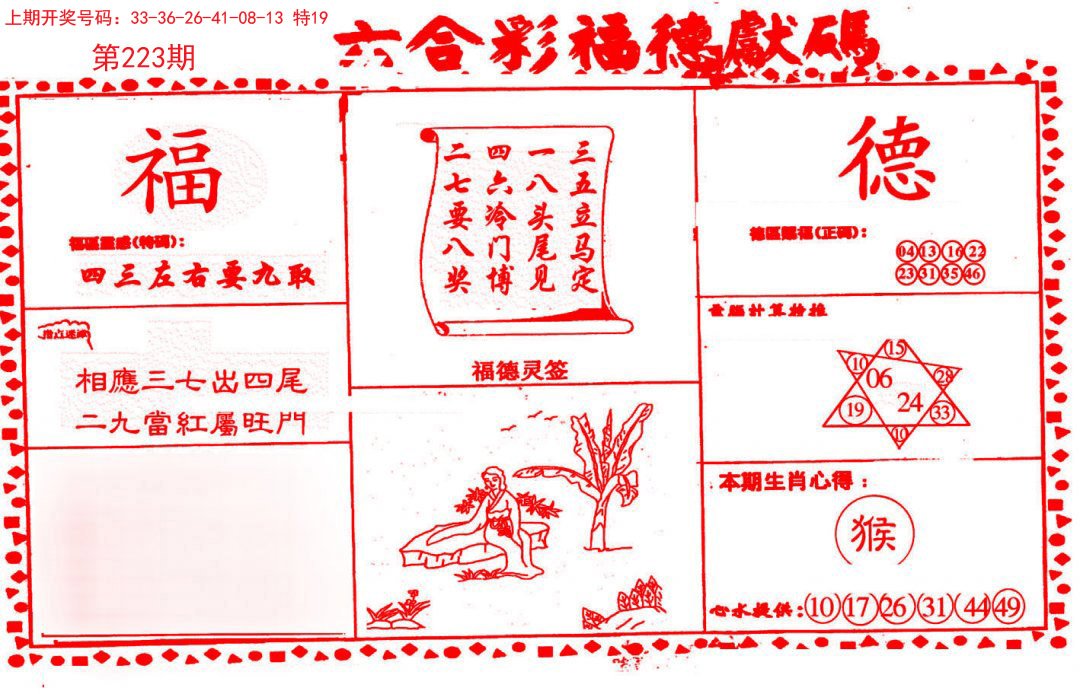 上期开奖号码：33-36-26-41-08-13 特19
第223期
六合彩福德獻碼
福
福區靈感(特碼)：
四三左右要九取
指点迷津
相應三七出四尾
二九當紅屬旺門
三五立马定
一八头尾见
四六冷门博
二七要八奖
福德灵签
德
德區賜福(正碼)：
04 13 16 22
23 31 35 46
電腦計算妙推
15
10 06 28
19 24 33
10
本期生肖心得：
猴
心水提供：10 17 26 31 44 49